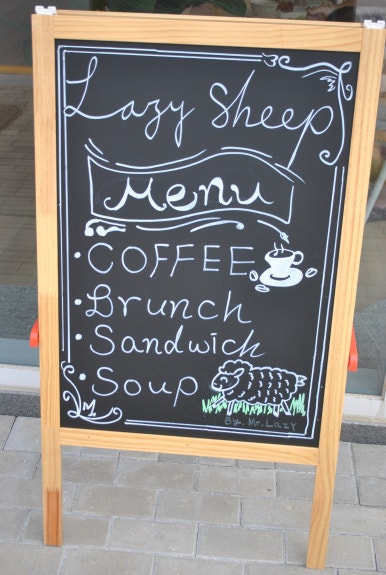 Lazy Sheep
Menu
• COFFEE
• Brunch
• Sandwich
• Soup
By. Mr. Lazy